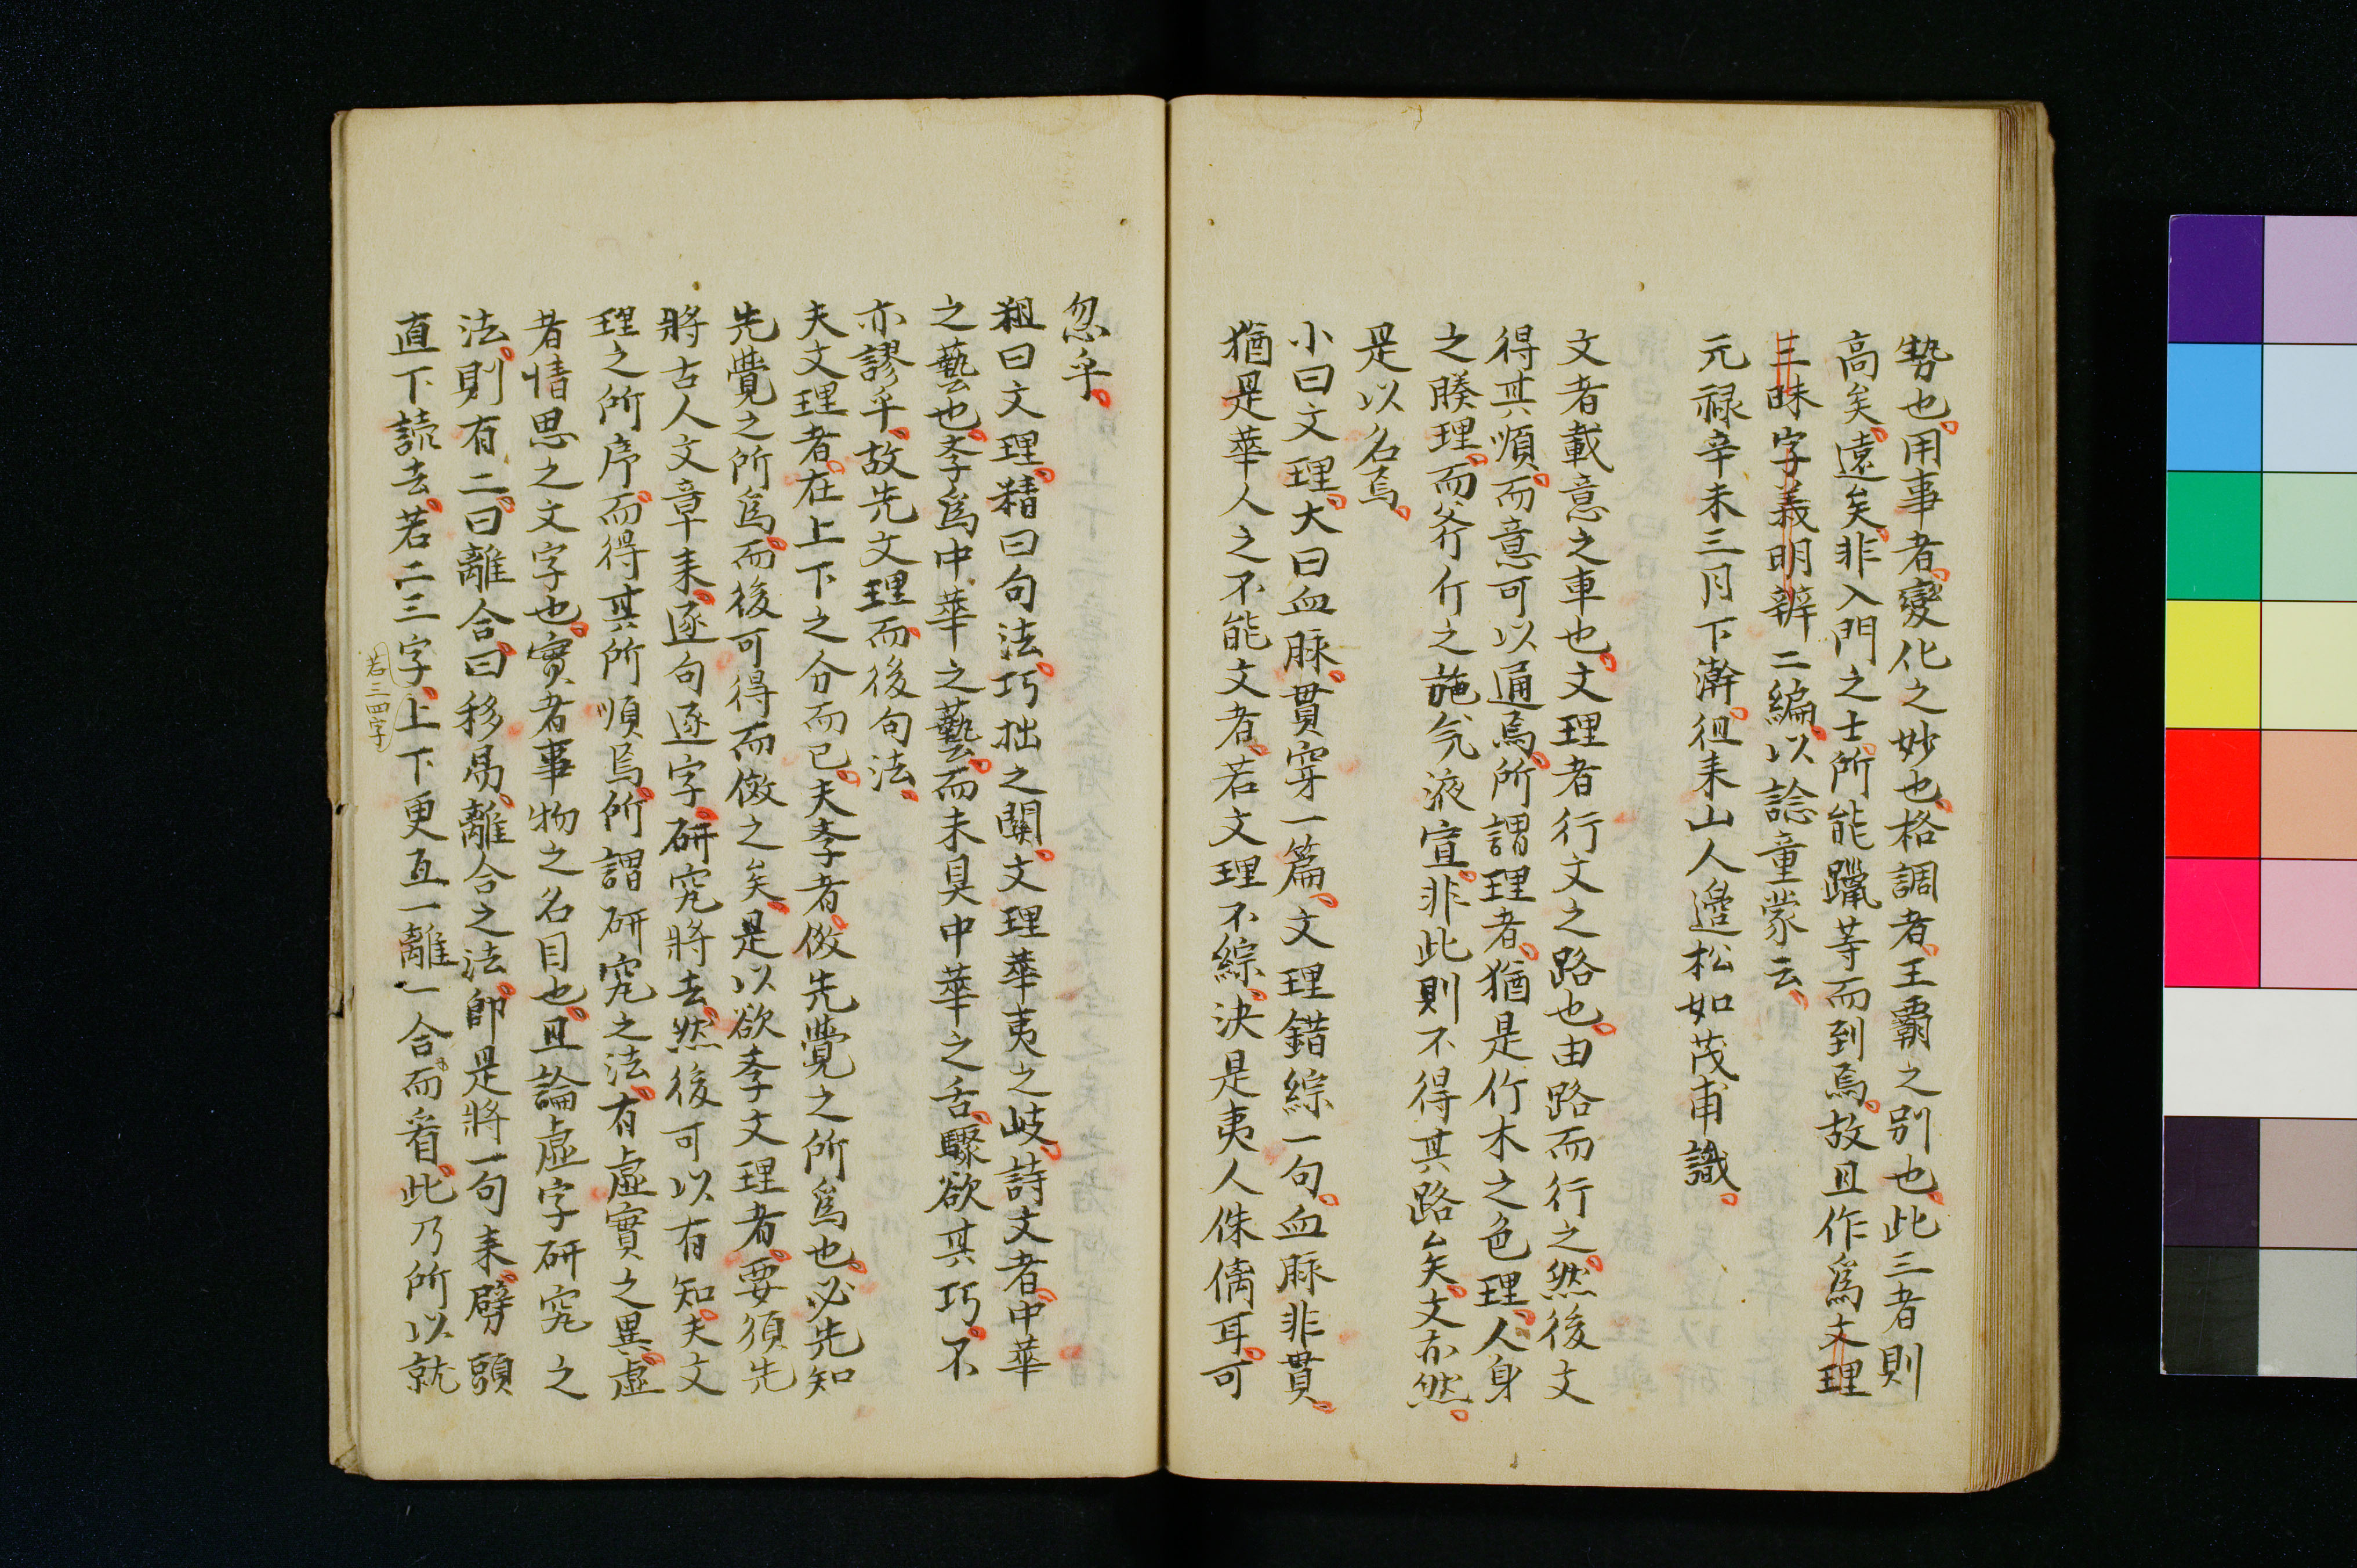 勢也。用事者。變化之妙也。格調者。王霸之別也。此三者則
高矣。遠矣。非入門之士。所能躐等而到焉。故且作爲文理
三昧字義明辨二編。以諗童蒙云。
元祿辛未三月下澣。徂耒山人邉松如茂甫識。
文者載意之車也。文理者行文之路也。由路而行之。然後文
得其順。而意可以通焉。所謂理者。猶是竹木之色理。人身
之腠理。而斧斤之施。氣液宣。非此則不得其路矣。文亦然。
是以名焉。
小曰文理。大曰血脉。貫穿一篇。文理錯綜一句。血脉非貫。
猶是華人之不能文者。若文理不綜。決是夷人侏儷耳。可
忽乎。
粗曰文理。精曰句法。巧拙之關。文理華夷之岐。詩文者。中華
之藝也。斈爲中華之藝。而未具中華之舌。驟欲其巧。不
亦謬乎。故先文理。而後句法。
夫文理者。在上下之分而已。夫斈者。倣先覺之所爲也。必先知
先覺之所爲。而後可得而倣之矣。是以欲斈文理者。要須先
將古人文章耒。逐句逐字。研究將去。然後可以有知。夫文
理之所序。而得其所順焉。所謂研究之法。有虛實之異。虛
者情思之文字也。實者事物之名目也。且論虛字研究之
法。則有二。曰離合。曰移易。離合之法。卽是將一句耒。劈頭
直下讀去。若二三字。上下更互一離一合。而看。此乃所以就
若三四字